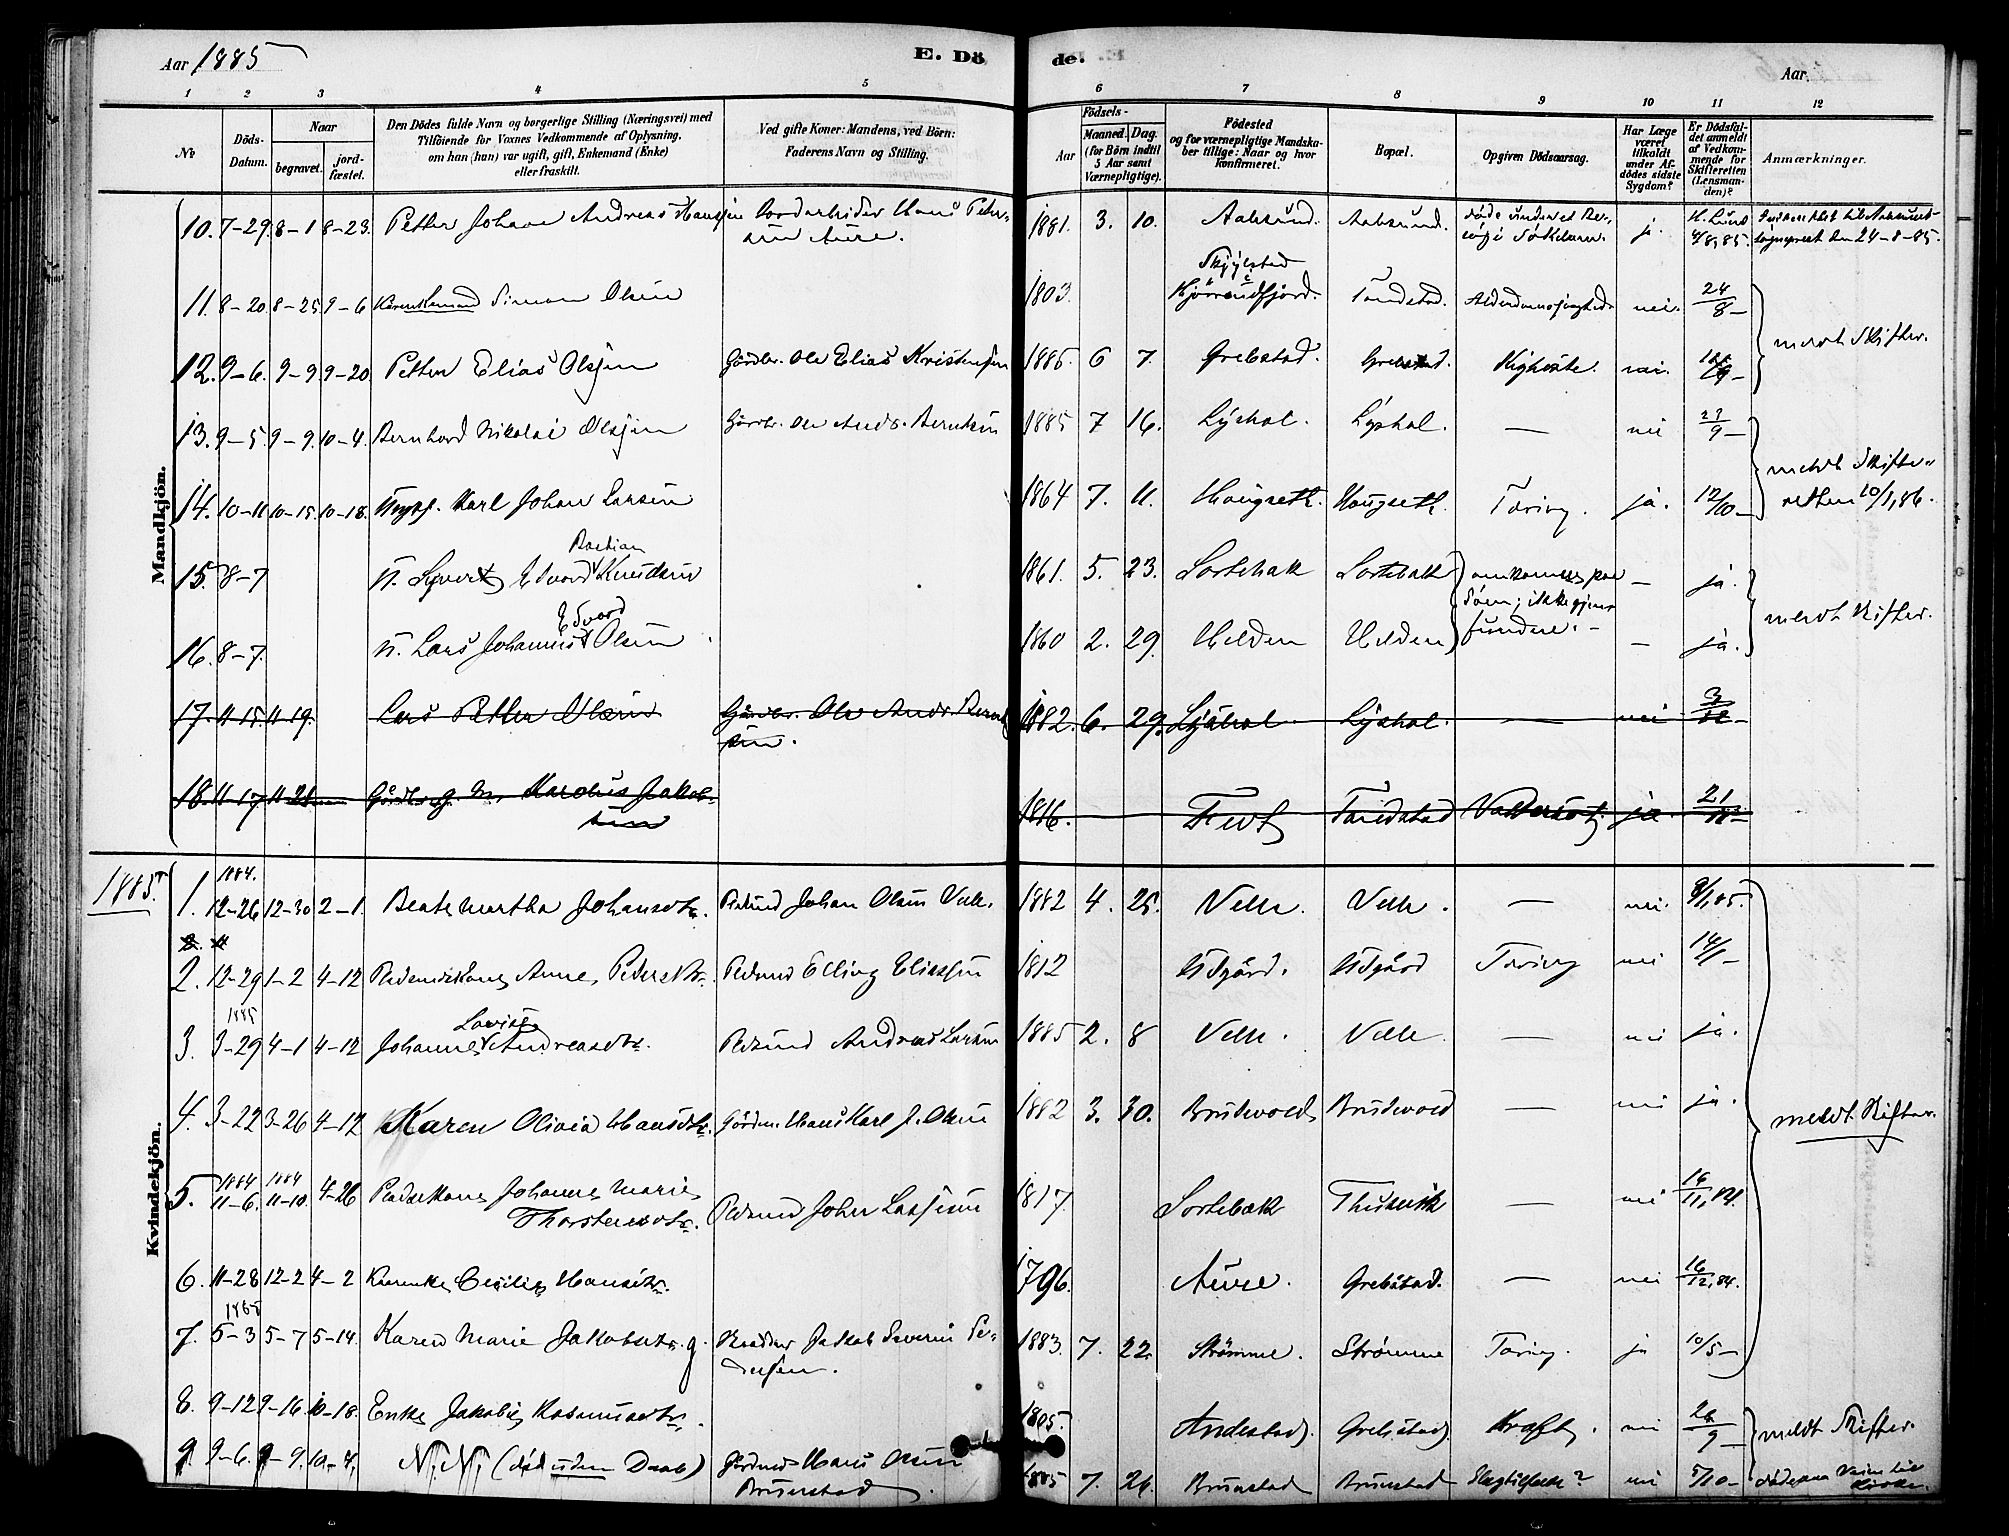 Aar 1885
E. Dö
de.
Aar.
1 2 3 4 5 6 7 8 9 10 11 12
№
Döds-
Datum.
Naar
begravet.
jord-
fæstet.
Den Dödes fulde Navn og borgerlige Stilling (Næringsvei) med
Tilföiende for Voxnes Vedkommende af Oplysning,
om han (hun) var ugift, gift, Enkemand (Enke)
eller fraskilt.
Ved gifte Koner: Mandens, ved Börn:
Faderens Navn og Stilling.
Födsels-
Aar
Maaned. Dag.
(for Börn indtil
5 Aar samt
Værnepligtige).
Födested
og for værnepligtige Mandska-
ber tillige: Naar og hvor
konfirmeret.
Bopæl.
Opgiven Dödsaarsag.
Har Læge
været
tilkaldt
under Af-
dödes sidste
Sygdom?
Er Dödsfal-
det anmeldt
af Vedkom-
mende for
Skifteretten
(Lensman-
den)?
Anmærkninger.
Mandkjön.
10. 7-29. 8-1 8-23. Petter Johan Andreas Hanssen Hans Peter-
sen Aure. 1881. 3. 10. Aalesund. Aalesund. ja.
den 24-8-85.
11. 8-20. 8-25 9-6 Simon Olsen 1803. Skylstad
Hjörendfjord. Tandstad. Alderdomssvaghed. nei. 24/8-
12. 9-6. 9-9. 9-20. Petter Elias Olsen Gårdbr. Ole Elias Kristensen 1885. 6 7. Grebstad. Grebstad. Kighoste. nei.
meldt Skifter.
13. 9-5. 9-9. 10-4. Bernhard Nikolai Olsen Gårdbr. Ole Ands. Berntsen 1885 7 16. Lyshol. Lyshol. — nei 27/9-
14. 10-11 10-15. 10-18. Ungkf. Karl Johan Larsen 1864 7. 11. Haugseth. Haugseth. Tæring. ja. 12/10-
meldt Skifte-
retten 10/1, 86.
15. 8-7 U. Syvert Edvard Bastian Knudsen 1861. 5. 23. Sortebak Sortebak omkommet paa
Söen; ikke gjen- — ja.
16. 8-7. U. Lars Johannes Edvard Olsen 1860 2. 29. Velden Velden fundne. — ja.
meldt Skifter.
17. 11-15. 11-19. Lars Petter Olsen Gårdbr. Ole Ands Bernt-
sen. 1882. 6. 29. Lyshol Lyshol. — nei 3/12-
18. 11-17 11-21 Gårdbr. g. M. Karolus Jakob-
sen 1816. Tandstad Vattersot. ja 21/11-
Kvindekjön.
1885.
1884.
1. 12-26 12-30 2-1. Beate Martha Johansdtr. Pladsmd Johan Olsen Velle. 1882 4. 25. Velle. Velle. — nei. 8/1, 85.
2. 12-29 1-2 4-12 Anne Pedersdtr. Pladsmd Elling Eliassen 1812 Udgård. Udgård Tæring nei 14/1-
1885
3. 3-29 4-1 4-12 Johanne Lovise Andreasdtr. Pladsmd Andreas Larsen 1885 2. 8 Velle. Velle — nei ja.
4. 3-22 3-26 4-12 Karen Olivia Hansdtr. Gårdm. Hans Karl J. Olsen 1882 3. 30. Brudevold Brudevold — nei ja.
meldt Skifter.
1884 1884
5. 11-6. 11-10. 4-26 Pladsekone Johanne Marie
Thorstensdtr. Pladsmd John Lassesen 1817. Sortebak — nei 16/11, 84.
6. 11-28 12-2 4-2 Cesilie Hansdtr. 1796. Aure. Grebstad. — nei 16/12, 84.
7. 5-3 5-7 5-14. Karen Marie Jakobsdtr. g. Jakob Severin Pe-
dersen. 1883. 7. 22. Strömme. Strömme Tæring. ja 10/5-
8. 9-12 9-16 10-18. Enke Jakobie Rasmusdtr. 1805. Andestad. Grebstad. Kræft. nei 26/9-
meldt Skifter.
9. 9-6. 9-9. 10-4. N. N. (död uden Daab) Gårdmd Hans Olsen
Brunstad. 1885 7. 26. Brunstad Brunstad Slagtilfælde? nei 5/10- döde paa Veien til
Kirken.